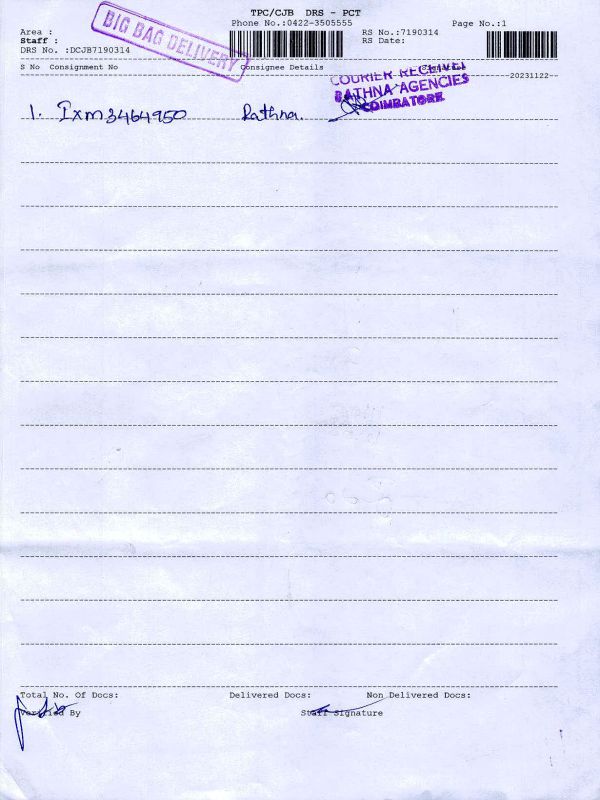 TPC/CJB DRS - PCT
Phone No.:0422-3505555
Page No.:1
Area :
Staff :
DRS No. :DCJB7190314
BIG BAG DELIVERY
RS No.:7190314
RS Date:
S No Consignment No Consignee Details Signature
--20231122--
COURIER RECEIVED
RATHNA AGENCIES
COIMBATORE
1. Ixm3464950 Rathna.
Total No. Of Docs: Delivered Docs: Non Delivered Docs:
Verified By Staff Signature